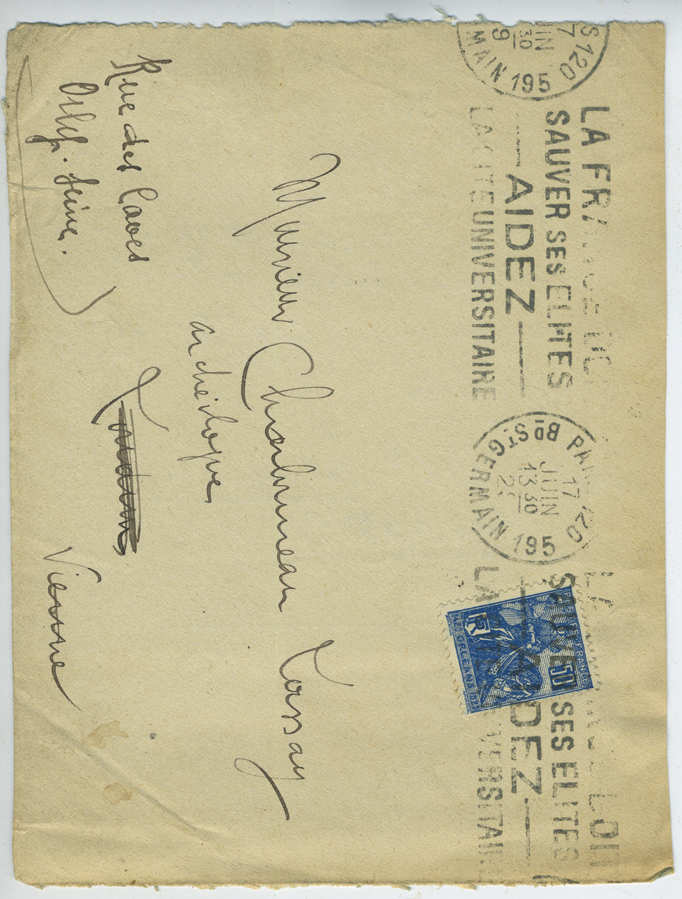 S 120
17
JUIN
30
MAIN 195
LA FRANCE DO
SAUVER SES ELITES
AIDEZ
LA CITE UNIVERSITAIRE
PARIS 120
17
JUIN
13 30
195 Bd St GERMAIN
LA FRANCE DOIT
SAUVER SES ELITES
AIDEZ
LA CITE UNIVERSITAIRE
FRANCE
50
ORLEANS
Monsieur Charbonneau Lassay
archéologue
Loudun Vienne
Rue des Caves
Orly. Seine.